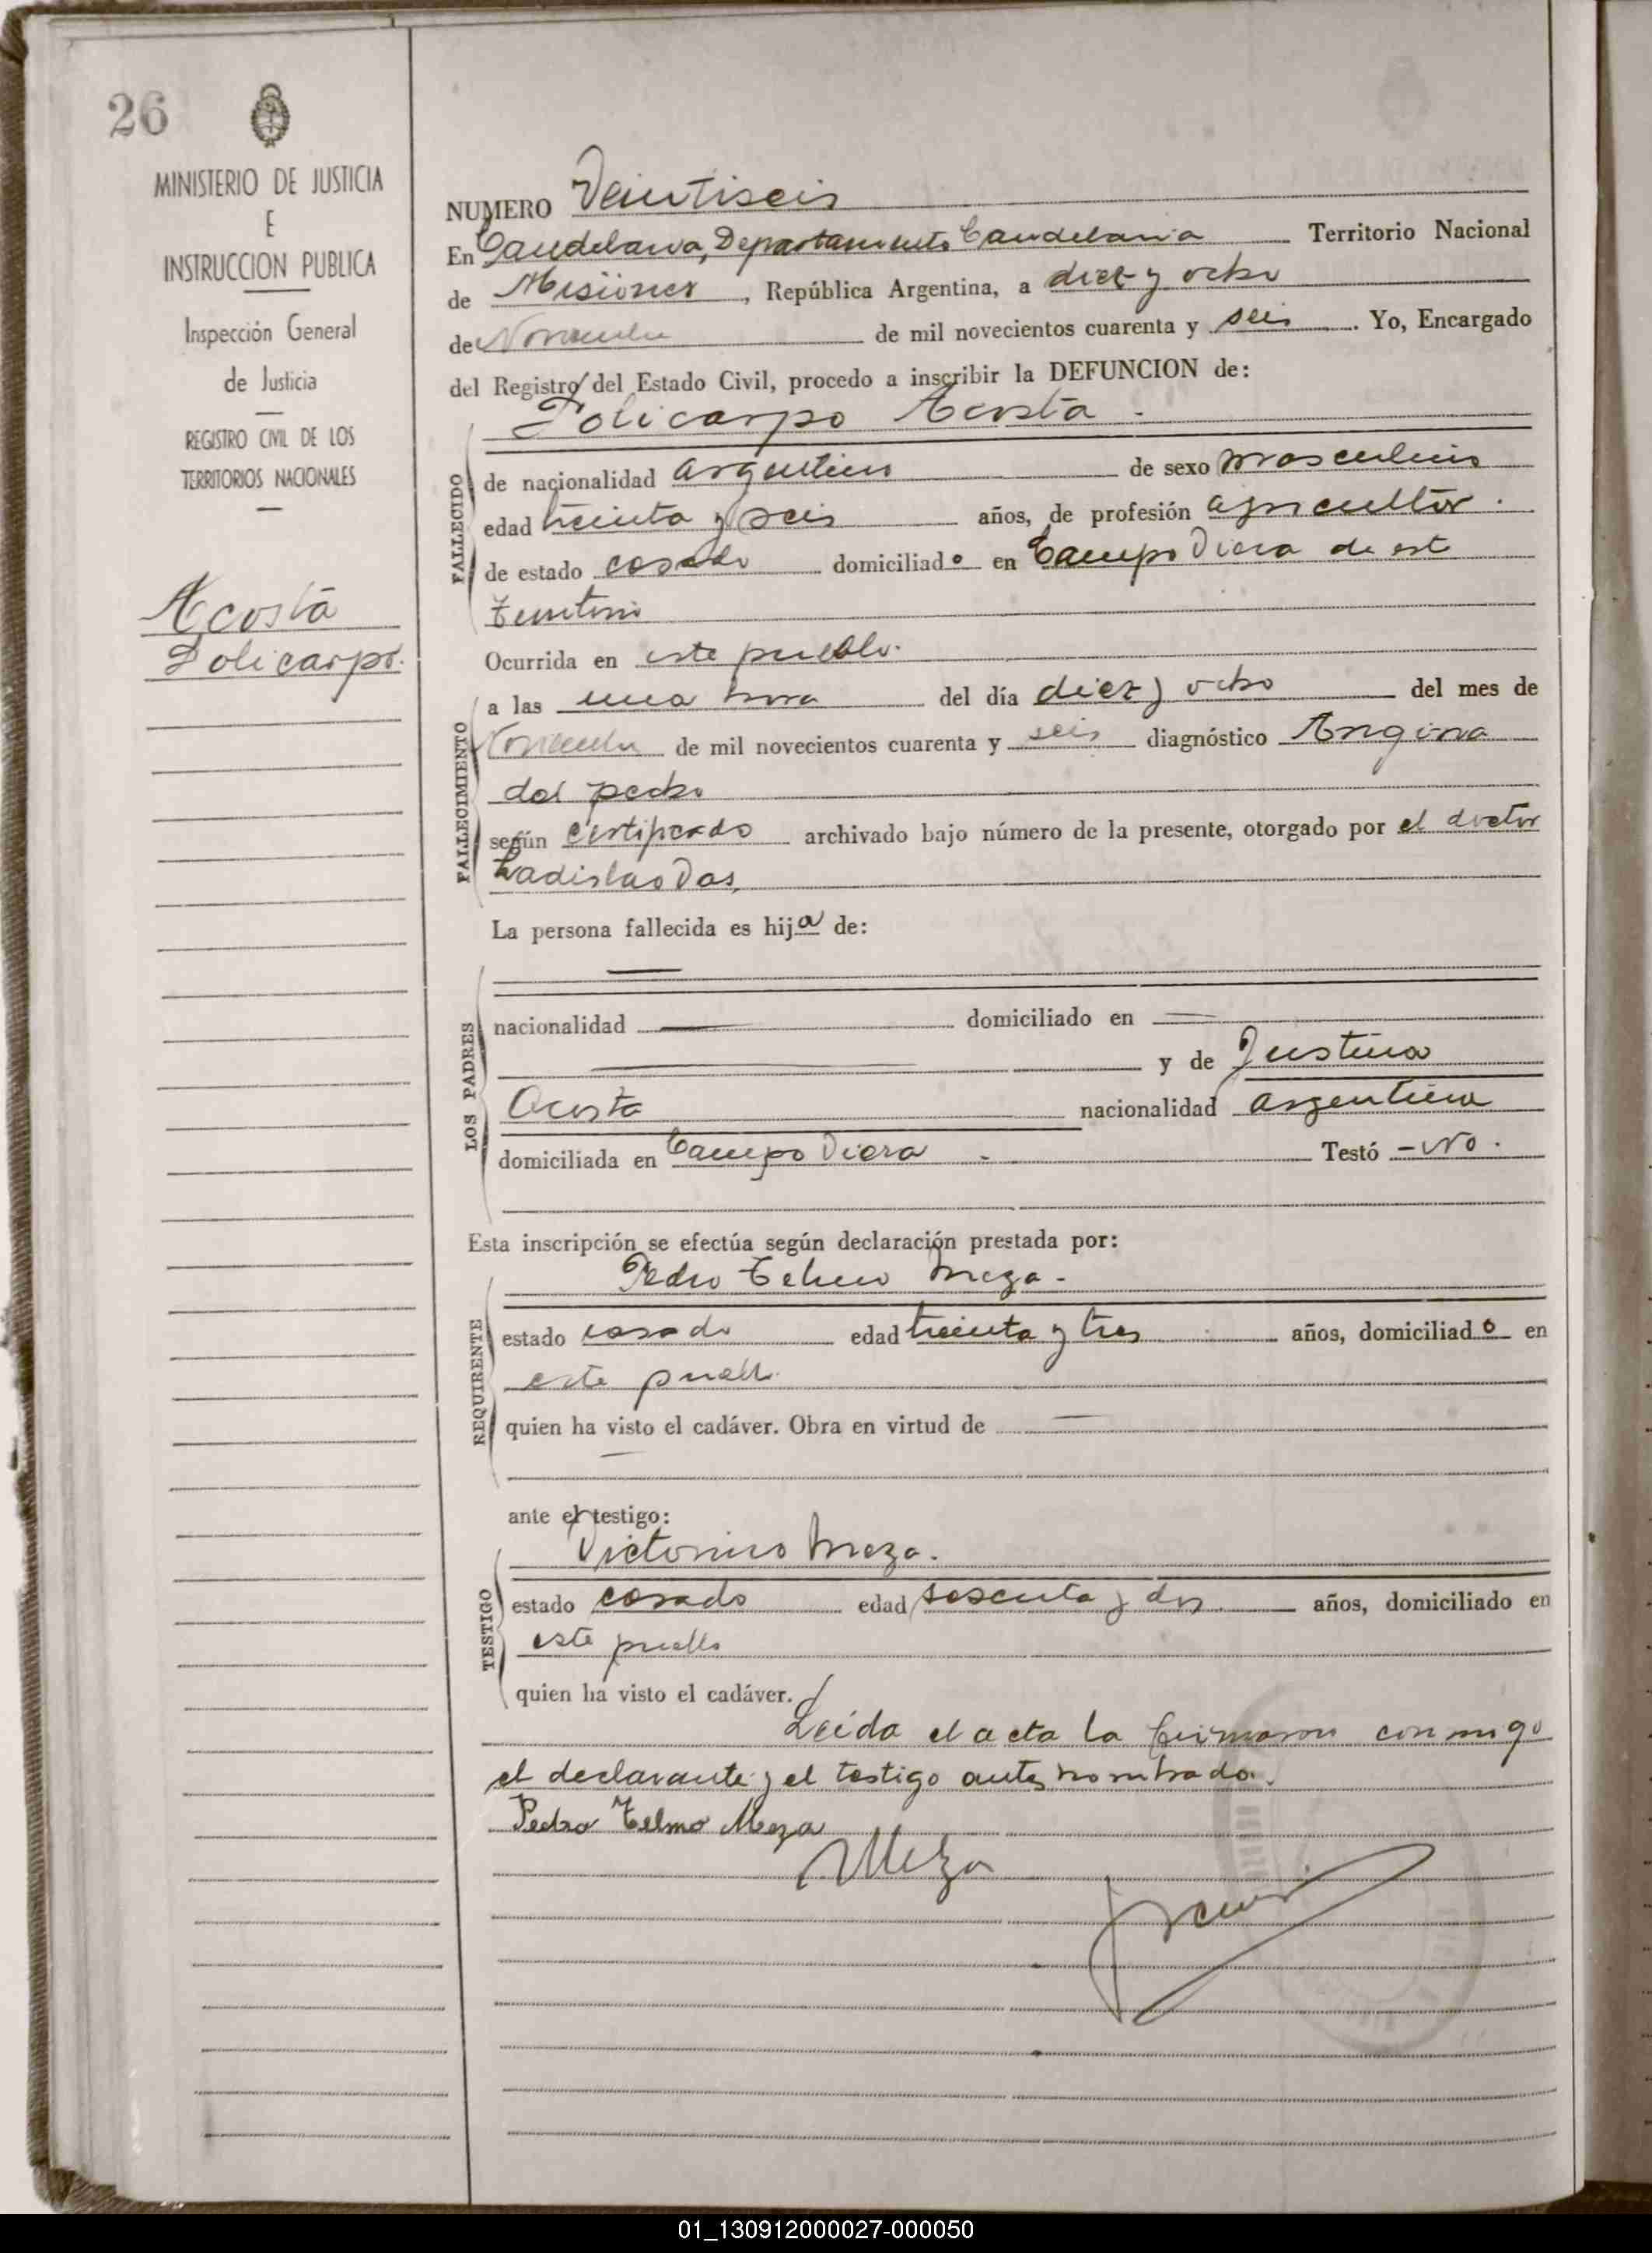 26
MINISTERIO DE JUSTICIA
E
INSTRUCCION PUBLICA
Inspección General
de Justicia
REGISTRO CIVIL DE LOS
TERRITORIOS NACIONALES
Acosta
Policarpo.
NUMERO Veintiseis
En Candelaria, Departamento Candelaria Territorio Nacional
de Misiones, República Argentina, a diez y ocho
de Noviembre de mil novecientos cuarenta y seis. Yo, Encargado
del Registro del Estado Civil, procedo a inscribir la DEFUNCION de:
Policarpo Acosta -
FALLECIDO
de nacionalidad argentino de sexo masculino
edad treinta y seis años, de profesión agricultor.
de estado casado domiciliado en Campo Viera de este
territorio
Ocurrida en este pueblo.
FALLECIMIENTO
a las una hora del día diez y ocho del mes de
Noviembre de mil novecientos cuarenta y seis diagnóstico Angina
del pecho
según certificado archivado bajo número de la presente, otorgado por el doctor
Ladislao
La persona fallecida es hija de:
LOS PADRES
nacionalidad — domiciliado en —
y de Justina
Acosta nacionalidad argentina
domiciliada en Campo Viera - Testó - No.
Esta inscripción se efectúa según declaración prestada por:
Pedro Telmo Meza -
REQUIRENTE
estado casado edad treinta y tres años, domiciliado en
este pueblo
quien ha visto el cadáver. Obra en virtud de —
ante el testigo:
Victorino Meza.
TESTIGO
estado casado edad sesenta y dos años, domiciliado en
este pueblo
quien ha visto el cadáver.
Leída el acta la firmaron conmigo
el declarante y el testigo antes nombrado.
Pedro Telmo Meza
Meza
01_130912000027-000050